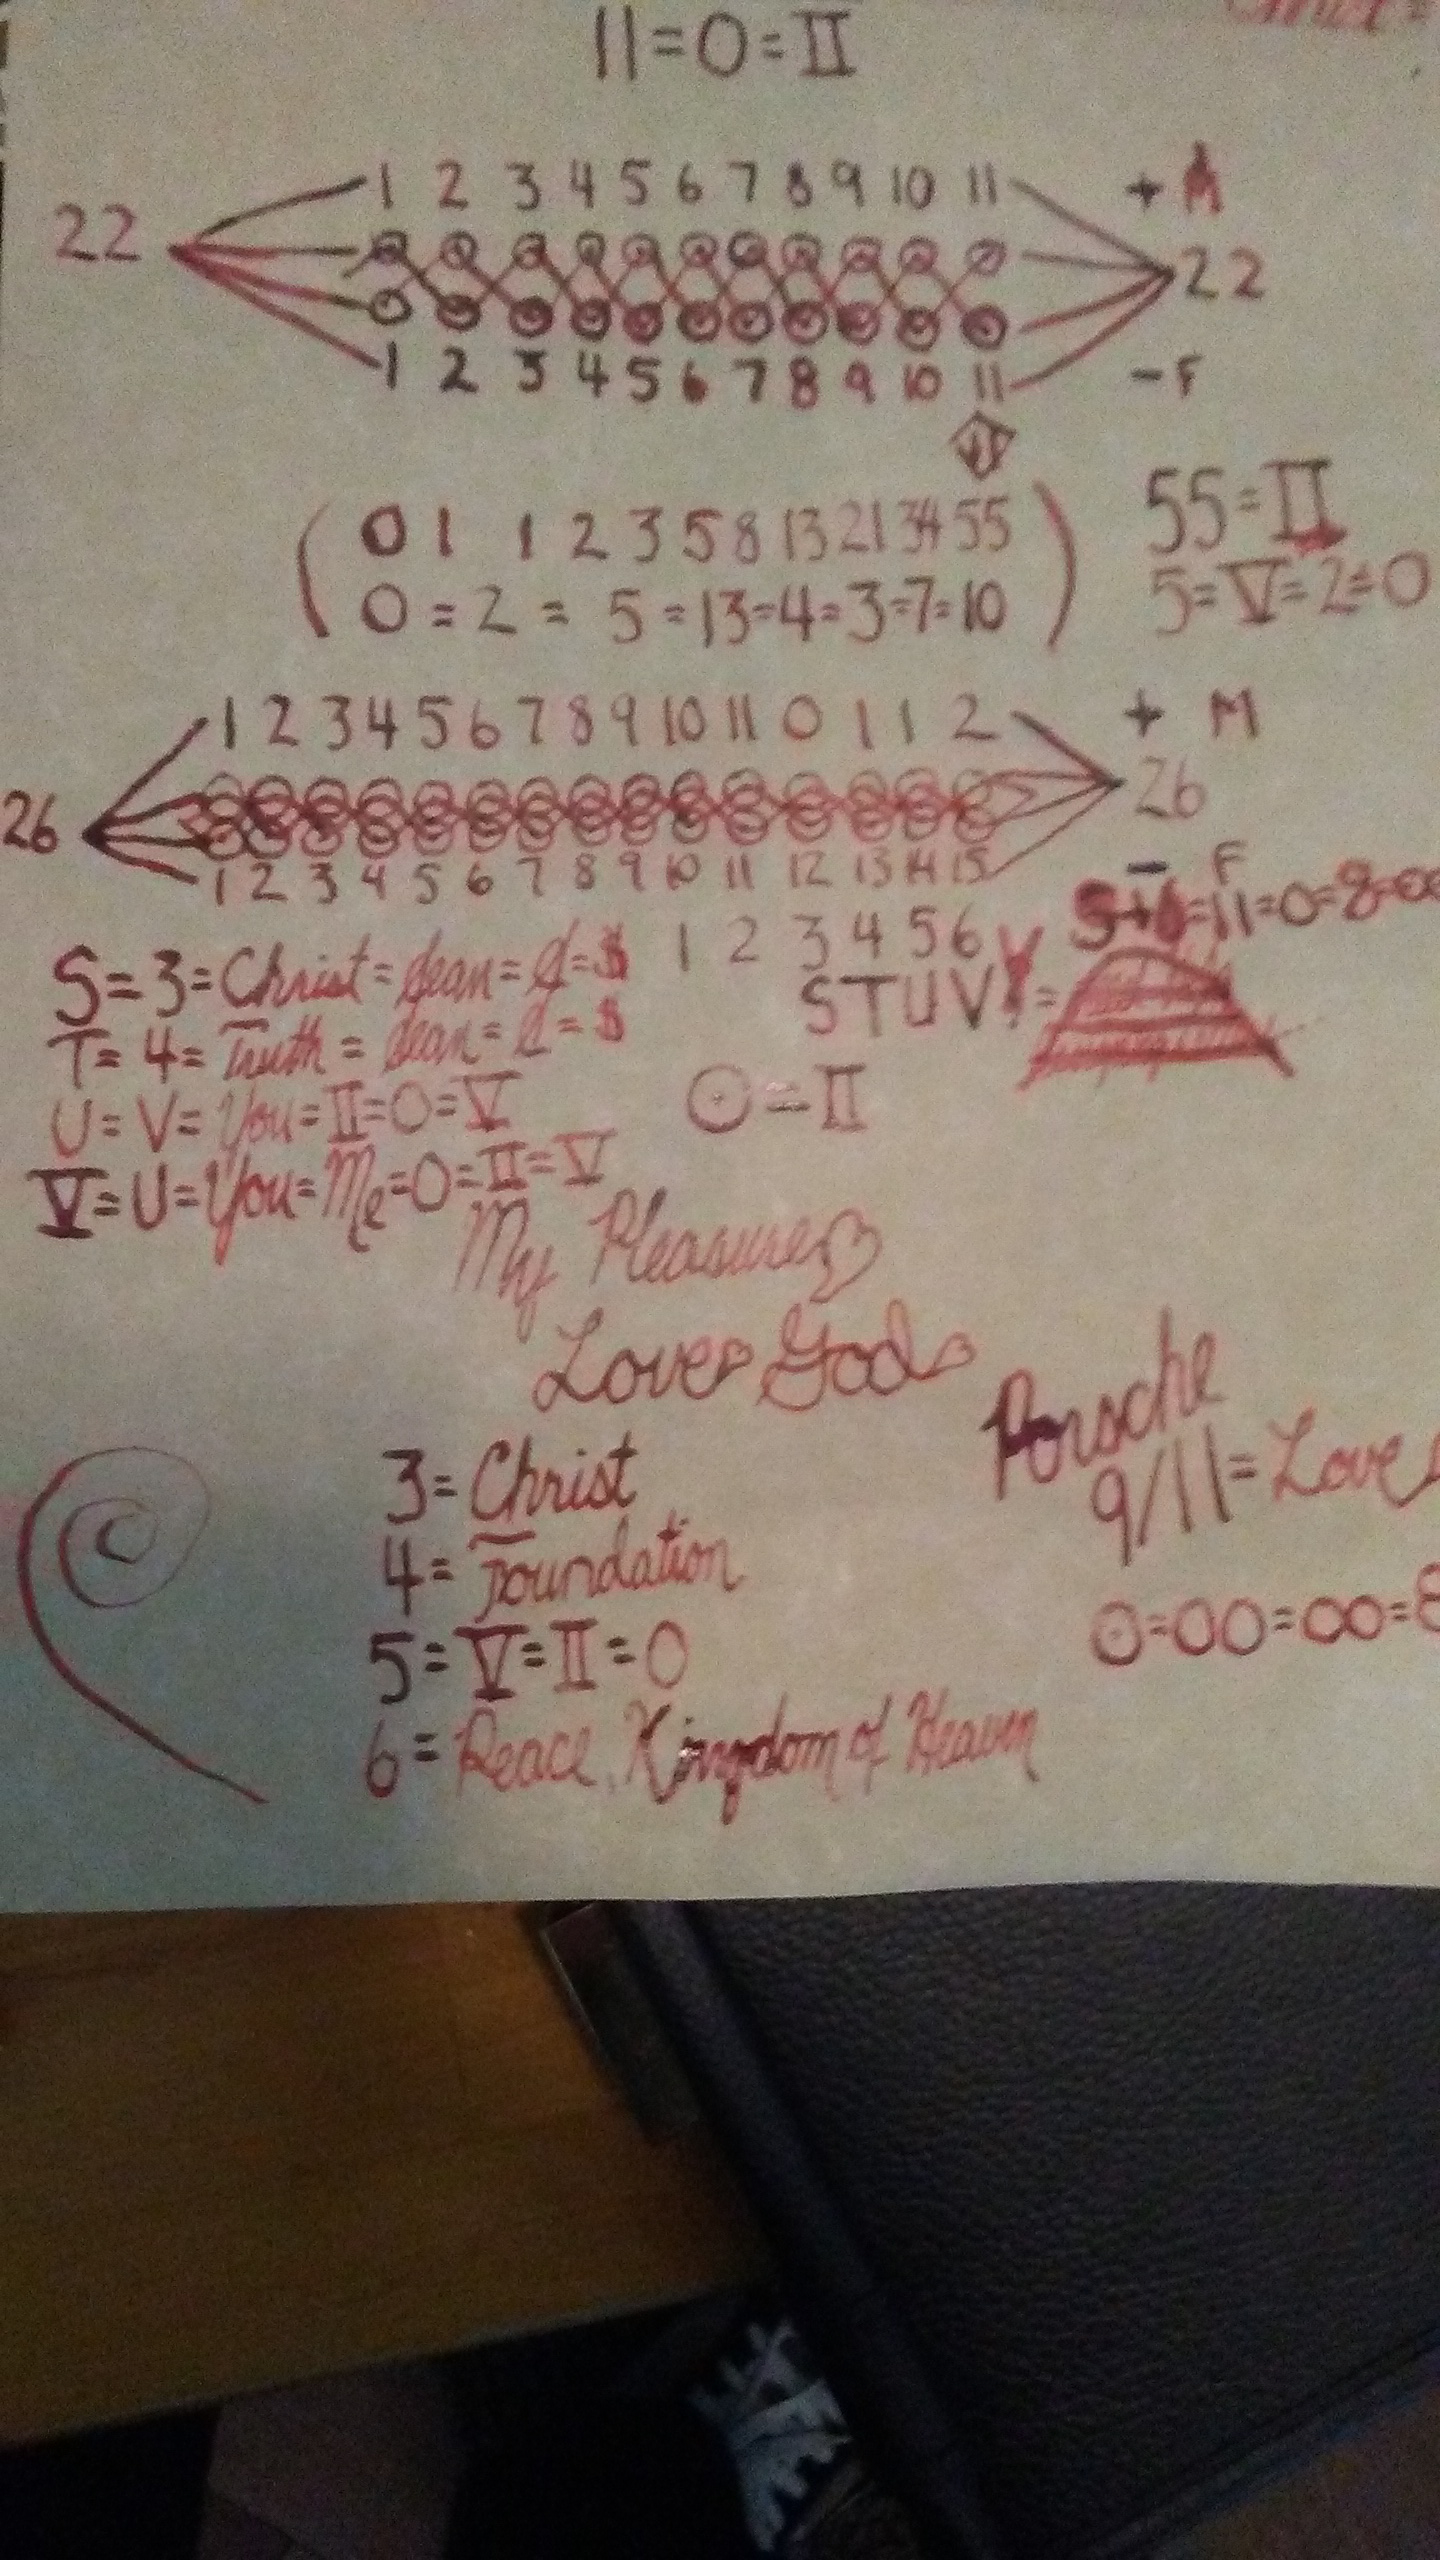 11=0=II
1 2 3 4 5 6 7 8 9 10 11 + M
22 22
1 2 3 4 5 6 7 8 9 10 11 - F
(0 1 1 2 3 5 8 13 21 34 55) 55=II
(0=2=5=13=4=3=7=10) 5=V=2=0
1 2 3 4 5 6 7 8 9 10 11 0 1 1 2 + M
26 26
1 2 3 4 5 6 7 8 9 10 11 12 13 14 15 - F
1 2 3 4 5 6 5+6=11=0=8=∞
S=3=Christ=dean=d=$ STUVY=
T=4=Truth=dean=d=$
U=V=You=II=0=V ⊙=II
V=U=You=Me=0=II=V
My Pleasure♡
Love God
Porsche
3=Christ 9/11=Love
4=Foundation
5=V=II=0 ⊙=00=∞=8
6=Peace, Kingdom of Heaven